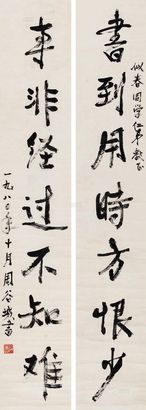 似春同学仁弟教正
書到用時方恨少
事非经过不知难
一九八〇年十月周谷城书